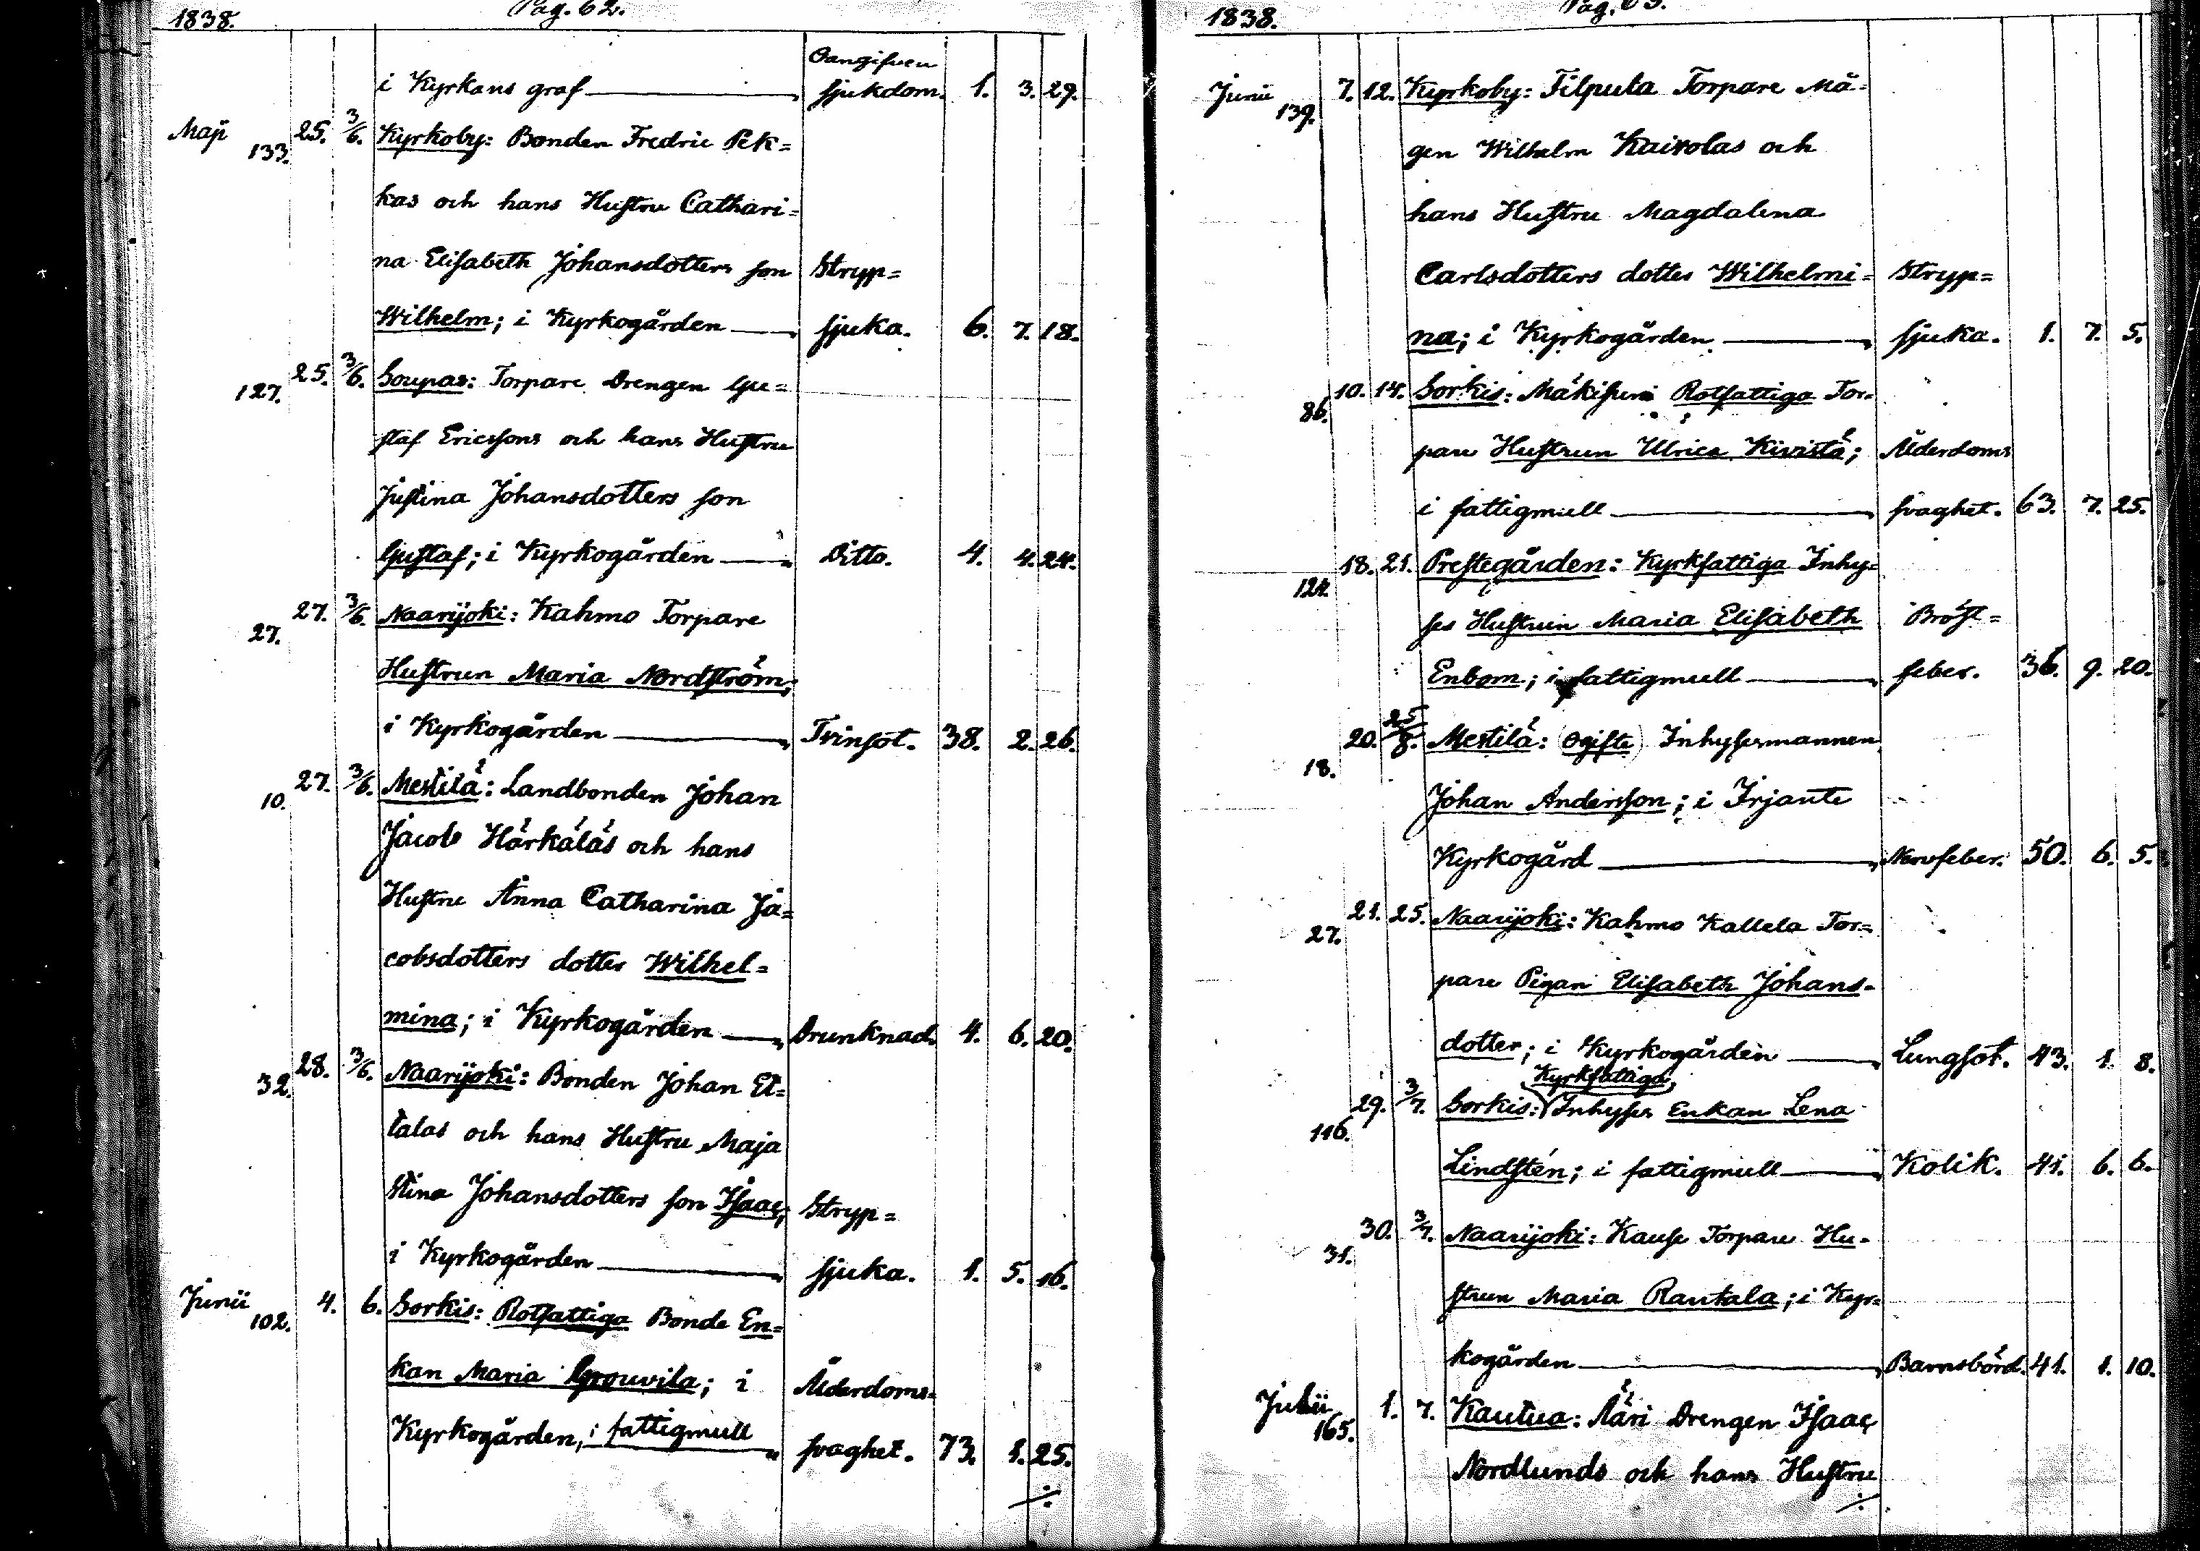 1838. Pag. 62.
Oangifven
i Kyrkans graf sjukdom. 1. 3. 29.
Maji 133. 25. 3/6. Kyrkoby: Bonden Fredric Pek=
kas och hans Hustru Cathari=
na Elisabeth Johansdotters son Stryp=
Wilhelm; i Kyrkogården sjuka. 6. 7. 18.
127. 25. 3/6. Soupas: Torpare Drengen Gu=
staf Ericssons och hans Hustru
Justina Johansdotters son
Gustaf; i Kyrkogården Ditto. 4. 4. 24.
27. 27. 3/6. Naarijoki: Kahmo Torpare
Hustrun Maria Nordström;
i Kyrkogården Tvinsot. 38. 2. 26.
10. 27. 3/6. Mestilä: Landbonden Johan
Jacob Härkäläs och hans
Hustru Anna Catharina Ja=
cobsdotters dotter Wilhel=
mina; i Kyrkogården Drunknad. 4. 6. 20.
32. 28. 3/6. Naarijoki: Bonden Johan Et=
talas och hans Hustru Maja
Stina Johansdotters son Isaac; Stryp=
i Kyrkogården sjuka. 1. 5. 16.
Junii 102. 4. 6. Sorkis: Rotfattiga Bonde En=
kan Maria Grouvila; i Ålderdoms=
Kyrkogården, i fattigmull svaghet. 73. 1. 25.
1838. Pag. 63.
Junii 139. 7. 12. Kyrkoby: Filpula Torpare Må=
gen Wilhelm Kaivolas och
hans Hustru Magdalena
Carlsdotters dotter Wilhelmi= Stryp=
na; i Kyrkogården sjuka. 1. 7. 5.
86. 10. 14. Sorkis: Mäkisuni Rotfattiga Tor=
pare Hustrun Ulrica Kivistä; Ålderdoms
i fattigmull svaghet. 63. 7. 25.
124. 18. 21. Prestegården: Kyrkfattiga Inhy=
ses Hustrun Maria Elisabeth Bröst=
Enbom; i fattigmull feber. 36. 9. 20.
18. 20. 25/8. Mestilä: (ogifte) Inhysesmannen
Johan Andersson; i Irjante
Kyrkogård Nervfeber. 50. 6. 5.
27. 21. 25. Naarijoki: Kahmo Kallela Tor=
pare Pigan Elisabeth Johans=
dotter; i Kyrkogården Lungsot. 43. 1. 8.
Kyrkfattiga
116. 29. 3/7. Sorkis: Inhyses Enkan Lena
Lindstén; i fattigmull Kolik. 41. 6. 6.
31. 30. 3/7. Naarijoki: Kause Torpare Hu=
strun Maria Rautala; i Kyr=
kogården Barnsbörd. 41. 1. 10.
Julii 165. 1. 7. Kautua: Ääri Drengen Isaac
Nordlunds och hans Hustru